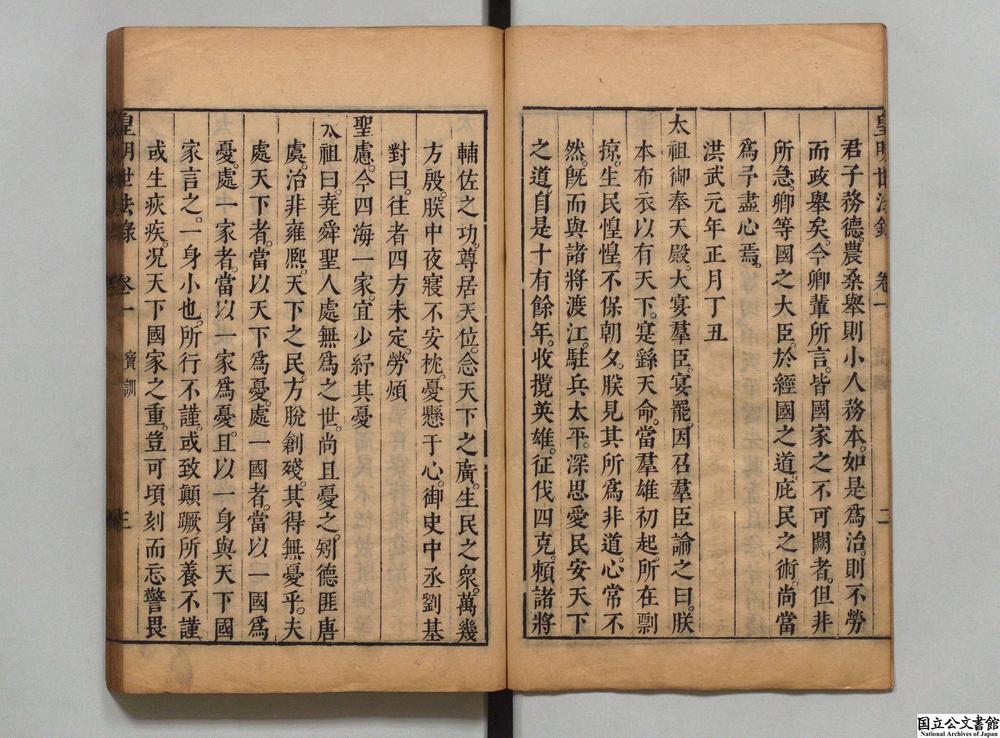 皇明世法錄 卷一 二
君子務德農桑舉則小人務本。如是爲治。則不勞
而政舉矣。今卿輩所言。皆國家之不可闕者。但非
所急。卿等國之大臣。於經國之道。庶民之術。尚當
爲予盡心焉。
洪武元年正月丁丑
太祖御奉天殿。大宴羣臣。宴罷。因召羣臣諭之曰。朕
本布衣以有天下。寔繇天命。當羣雄初起。所在剽
掠。生民惶惶不保朝夕。朕見其所爲非道。心常不
然。旣而與諸將渡江。駐兵太平。深思愛民安天下
之道。自是十有餘年。收攬英雄。征伐四克。頼諸將
輔佐之功。尊居天位。念天下之廣。生民之衆。萬幾
方殷。朕中夜寢不安枕。憂懸于心。御史中丞劉基
對曰。往者四方未定。勞煩
聖慮。今四海一家。宜少紓其憂
太祖曰。堯舜聖人處無爲之世。尚且憂之。矧德匪唐
虞。治非雍熈。天下之民。方脫創殘。其得無憂乎。夫
處天下者。當以天下爲憂。處一國者。當以一國爲
憂。處一家者。當以一家爲憂。且以一身與天下國
家言之。一身小也。所行不謹。或致顛蹶所養不謹
或生疾疢。况天下國家之重。豈可頃刻而忘警畏
皇明世法錄 卷一 寶訓 三
国立公文書館
National Archives of Japan